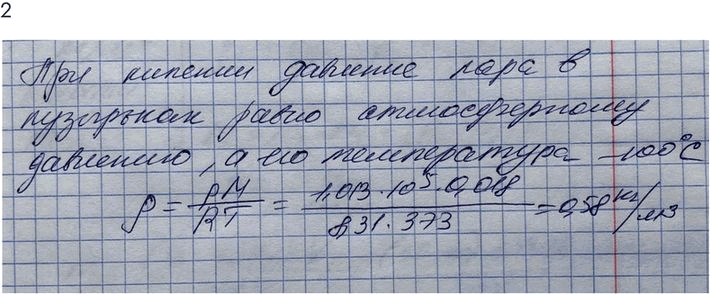 2
При кипении давление пара в
пузырьках равно атмосферному
давлению, а его температура - 100°C
ρ = pM/RT = 1,013 · 10⁵ · 0,018 / 8,31 · 373 = 0,58 кг/м3